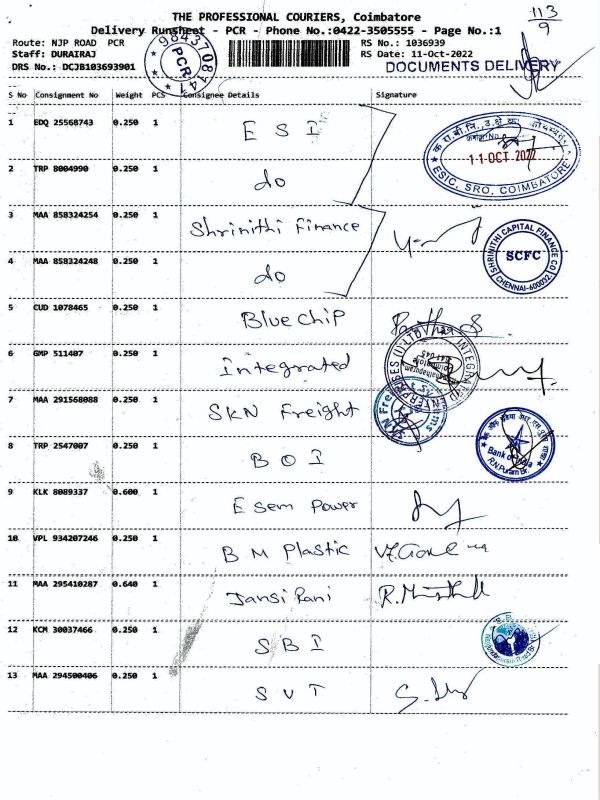 THE PROFESSIONAL COURIERS, Coimbatore
113
9
Delivery Runsheet - PCR - Phone No.:0422-3505555 - Page No.:1
Route: NJP ROAD PCR
RS No.: 1036939
Staff: DURAIRAJ
RS Date: 11-Oct-2022
DRS No.: DCJB103693901
9843708141
PCR
DOCUMENTS DELIVERY
S No Consignment No Weight PCS Consignee Details Signature
1 EDQ 25568743 0.250 1 E S I
11 OCT 2022
ESIC, SRO, COIMBATORE
2 TRP 8004990 0.250 1 do
3 MAA 858324254 0.250 1 Shrinithi Finance
SHRINITHI CAPITAL FINANCE CO
SCFC
CHENNAI-600092
4 MAA 858324248 0.250 1 do
5 CUD 1078465 0.250 1 Blue chip
6 GMP 511407 0.250 1 Integrated
INTEGRATED ENTERPRISES (I) LTD
7 MAA 291568088 0.250 1 SKN Freight
SKN Freight
8 TRP 2547007 0.250 1 B O I
Bank of India
R.N.Puram Br.
9 KLK 8089337 0.600 1 E sem Power
10 VPL 934207246 0.250 1 B M Plastic
11 MAA 295410287 0.640 1 Jansi Rani
12 KCM 30037466 0.250 1 S B I
13 MAA 294500406 0.250 1 S V T